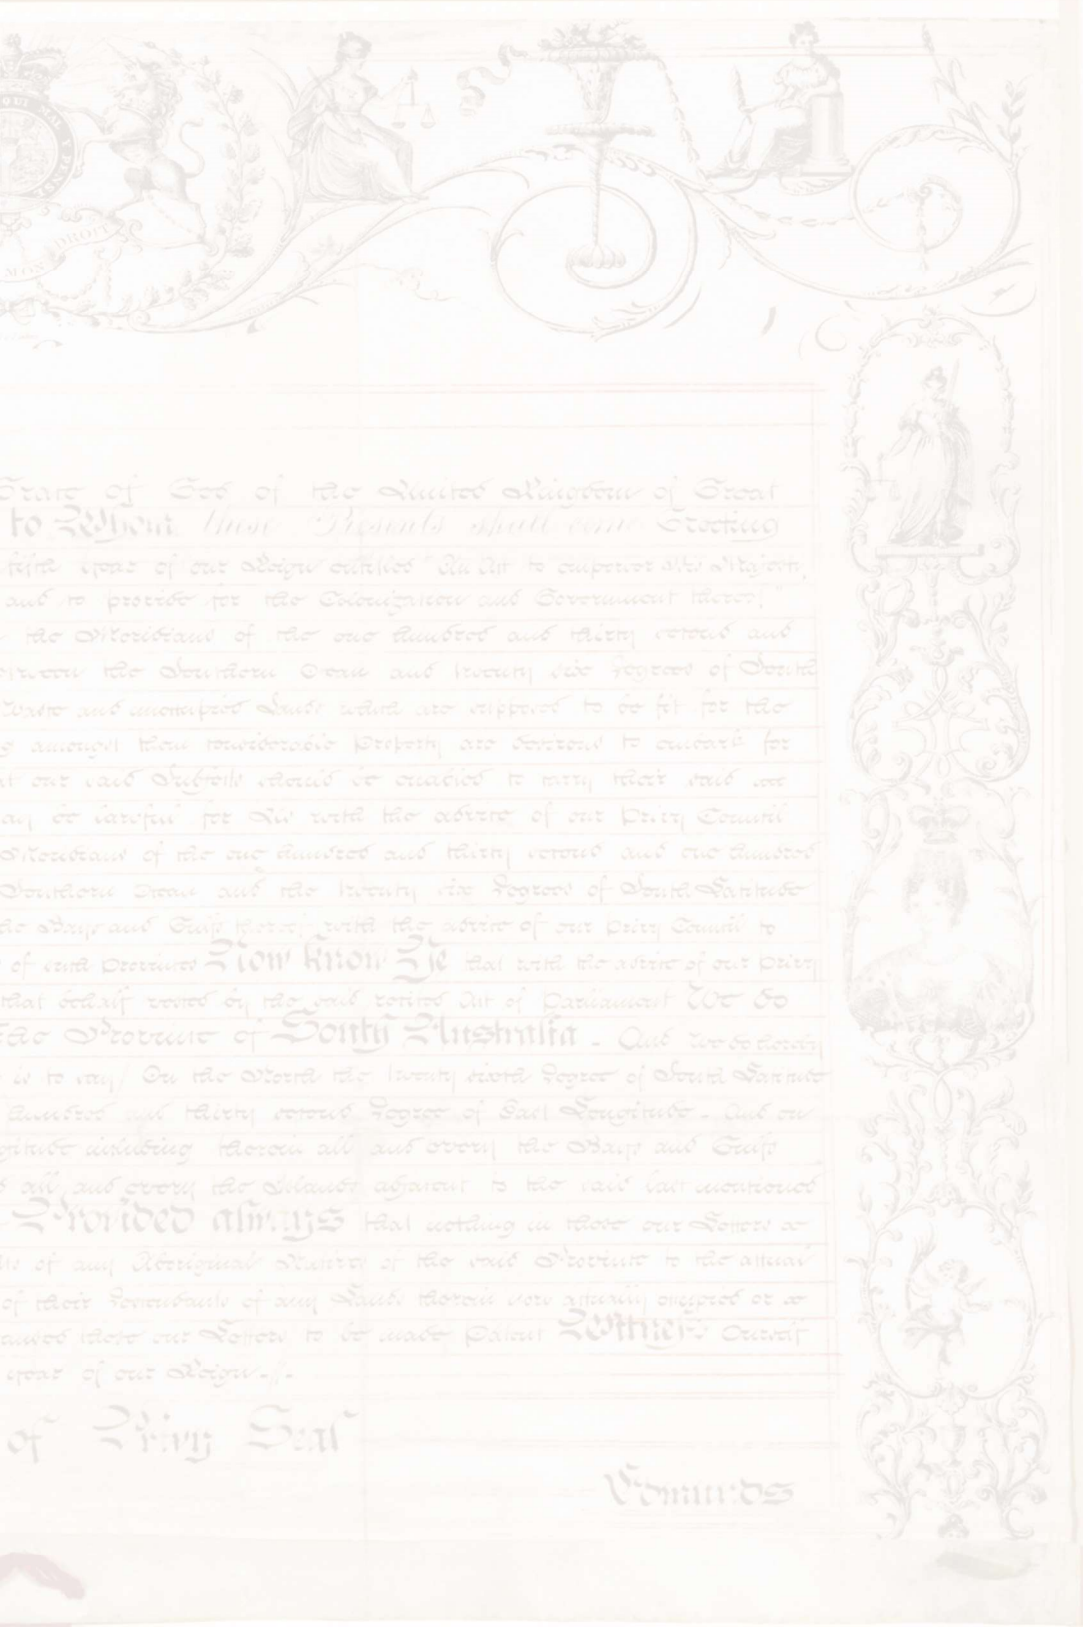 QUI MAL Y PENSE
MON DROIT
Grace of God of the United Kingdom of Great
to Whom these Presents shall come Greeting
fifth year of our Reign entitled "An Act to empower His Majesty,
and to provide for the Colonization and Government thereof"
the Meridians of the one hundred and thirty second and
between the Southern Ocean and twenty six Degrees of South
Waste and unoccupied Lands which are supposed to be fit for the
amongst them considerable Property are desirous to embark for
our said Subjects should be enabled to carry their said
be lawful for Us with the advice of our Privy Council
Meridians of the one hundred and thirty second and one hundred
Southern Ocean and the twenty six Degrees of South Latitude
the Bays and Gulfs thereof with the advice of our Privy Council to
of such Province Now Know Ye that with the advice of our Privy
that behalf vested by the said recited Act of Parliament We do
the Province of South Australia - And we do hereby
is to say / On the North the twenty sixth Degree of South Latitude
hundred and thirty second Degree of East Longitude - And on
including therein all and every the Bays and Gulfs
all and every the Islands adjacent to the said last mentioned
Provided always that nothing in those our Letters
of any Aboriginal Natives of the said Province to the actual
of their Descendants of any Lands therein now actually occupied or
caused these our Letters to be made Patent Witness Ourself
year of our Reign
of Privy Seal
Edmunds